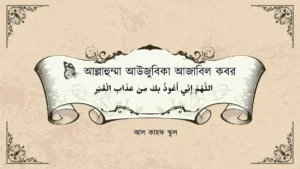 আল্লাহুম্মা আউজুবিকা আজাবিল কবর
اللَّهُمَّ إِنِّي أَعُوذُ بِكَ مِن عَذَابِ الْقَبْرِ
আল কাহফ স্কুল